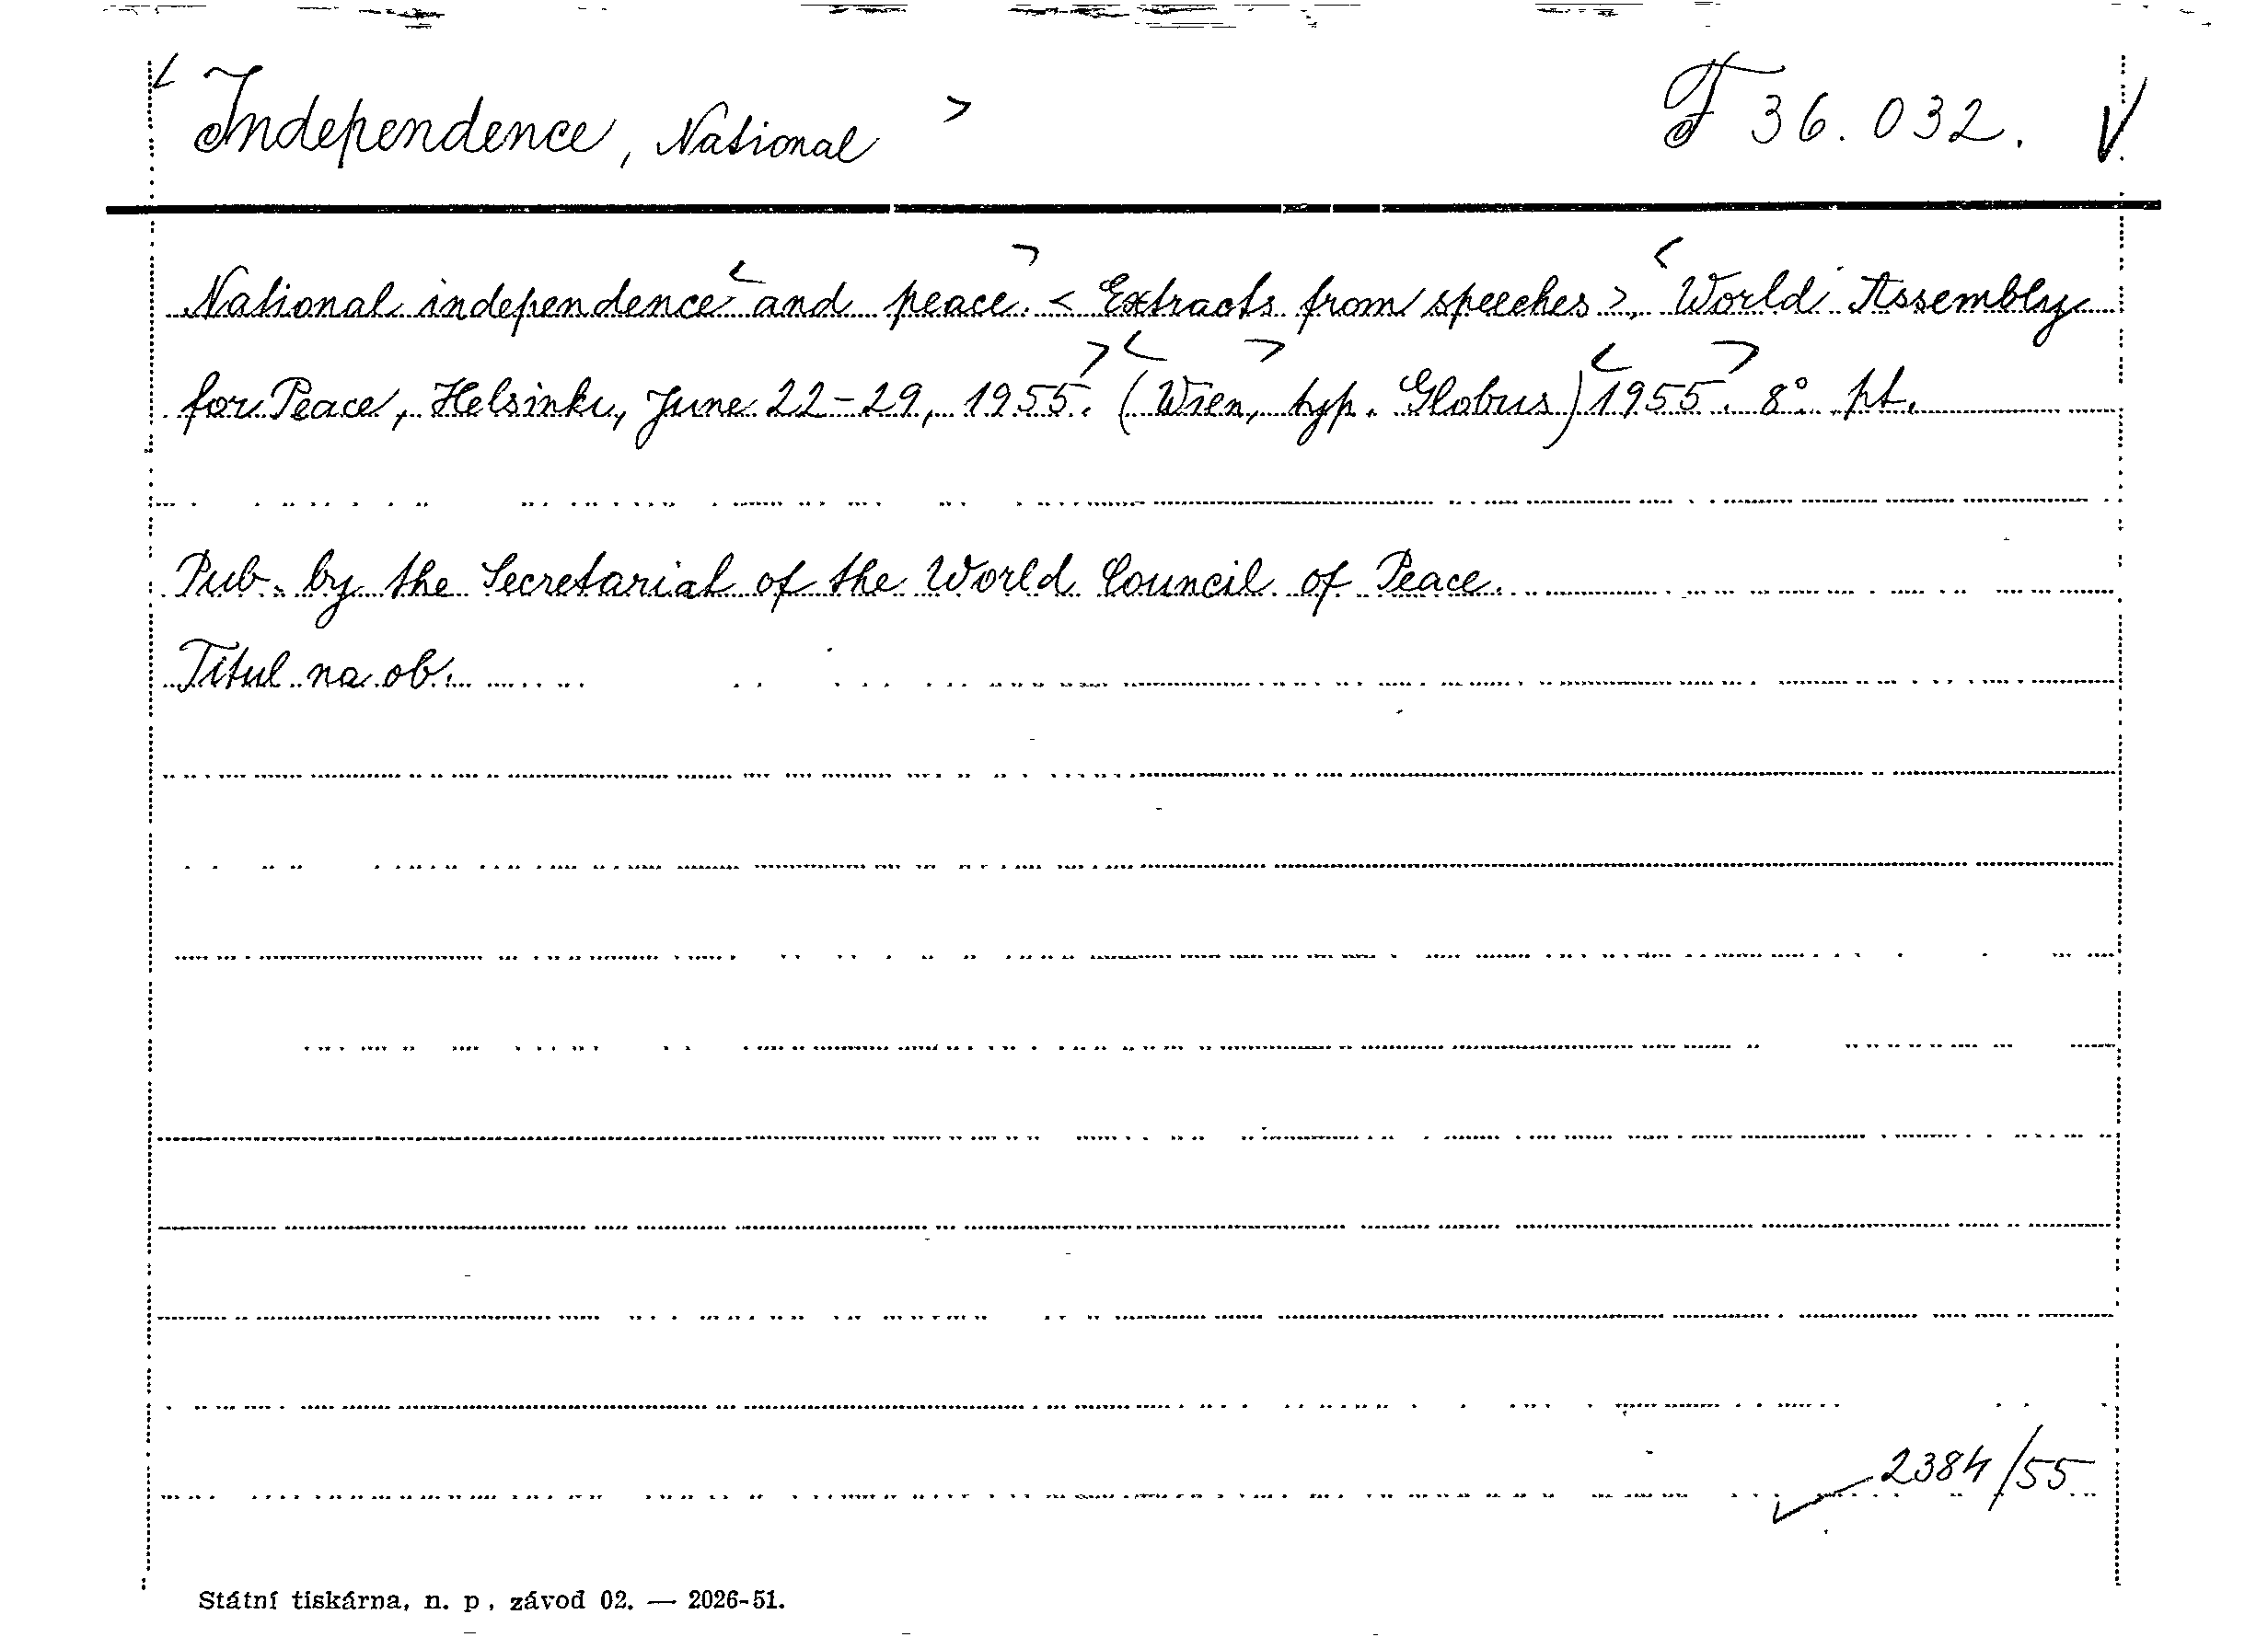 < Independence, National > F 36.032. V
National independence < and peace. > < Extracts from speeches >, < World Assembly
for Peace, Helsinki, June 22-29, 1955. > (< Wien, > typ. Globus) < 1955. > 8° pt.
Pub. by the Secretariat of the World Council of Peace.
Titul na ob.
2384/55
Státní tiskárna, n. p., závod 02. — 2026-51.